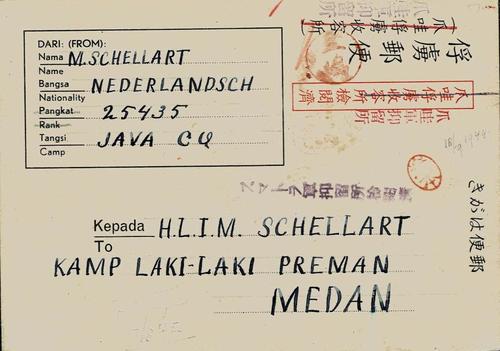 DARI: (FROM):
Nama M. SCHELLART
Name
Bangsa NEDERLANDSCH
Nationality
Pangkat 25435
Rank
Tangsi JAVA CQ
Camp
俘虜郵便
爪哇俘虜收容所
爪哇俘虜收容所檢閲濟
爪哇軍抑留所
きがは便郵
Kepada H.L.I.M. SCHELLART
To
KAMP LAKI-LAKI PREMAN
MEDAN